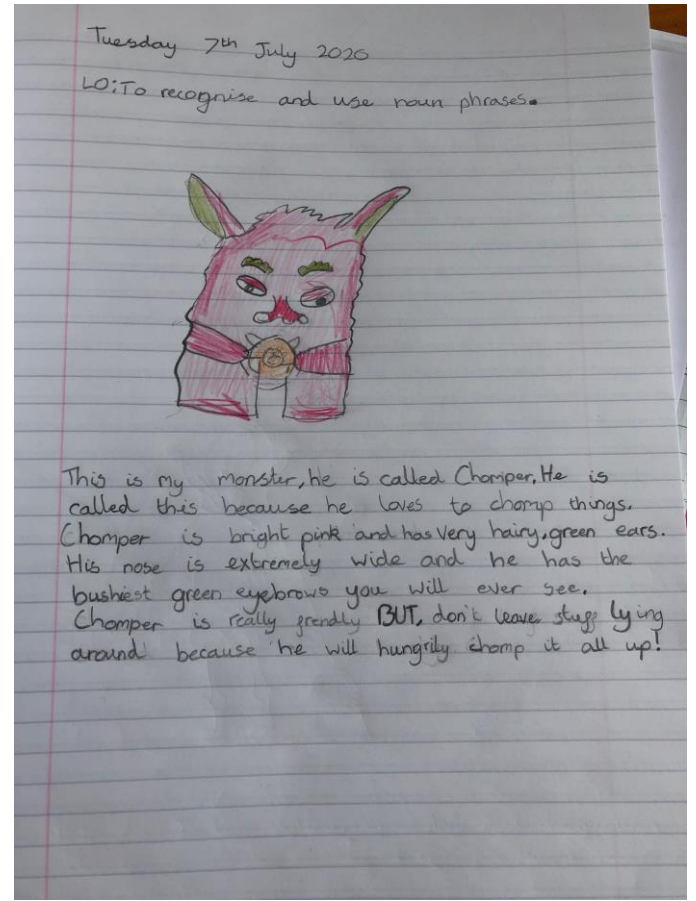 Tuesday 7th July 2020
LO:To recognise and use noun phrases.
This is my monster, he is called Chomper. He is
called this because he loves to chomp things.
Chomper is bright pink and has very hairy, green ears.
His nose is extremely wide and he has the
bushiest green eyebrows you will ever see.
Chomper is really frendly BUT, don't leave stuff lying
around because he will hungrily chomp it all up!